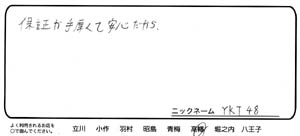 保証が手厚くて安心だから、
ニックネーム YKT48
よく利用されるお店を
○で囲んでください。
立川 小作 羽村 昭島 青梅 高幡 堀之内 八王子